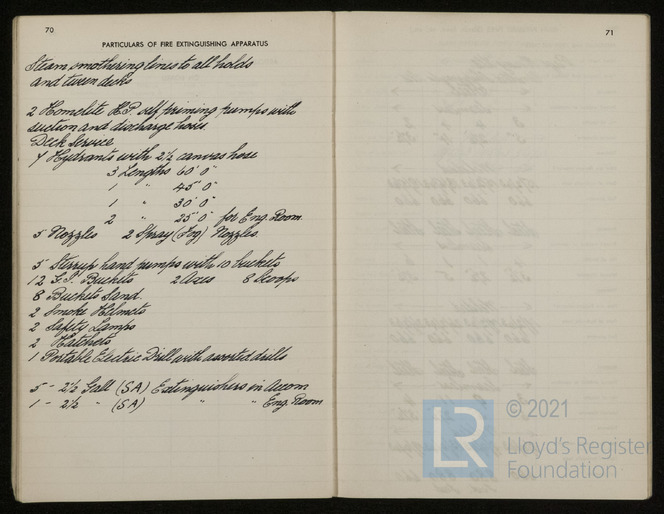 70
PARTICULARS OF FIRE EXTINGUISHING APPARATUS
Steam smothering lines to all holds
and tween decks
2 Homelite H.P. self priming pumps with
suction and discharge hoses.
Deck Service
7 Hydrants with 2½ canvas hose
3 Lengths 60' 0"
1 " 45' 0"
1 " 30' 0"
2 " 25' 0" for Eng. Room
5 Nozzles 2 Spray (Fog) Nozzles.
5 Stirrup hand pumps with 10 buckets
12 G.I. Buckets 2 Axes 8 Scoops
8 Buckets Sand.
2 Smoke Helmets
2 Safety Lamps
2 Hatchets
1 Portable Electric Drill with assorted drills
5 - 2½ Gall (SA) Extinguishers in Accom
1 - 2½ " (SA) " " Eng. Room
71
LR
© 2021
Lloyd's Register
Foundation